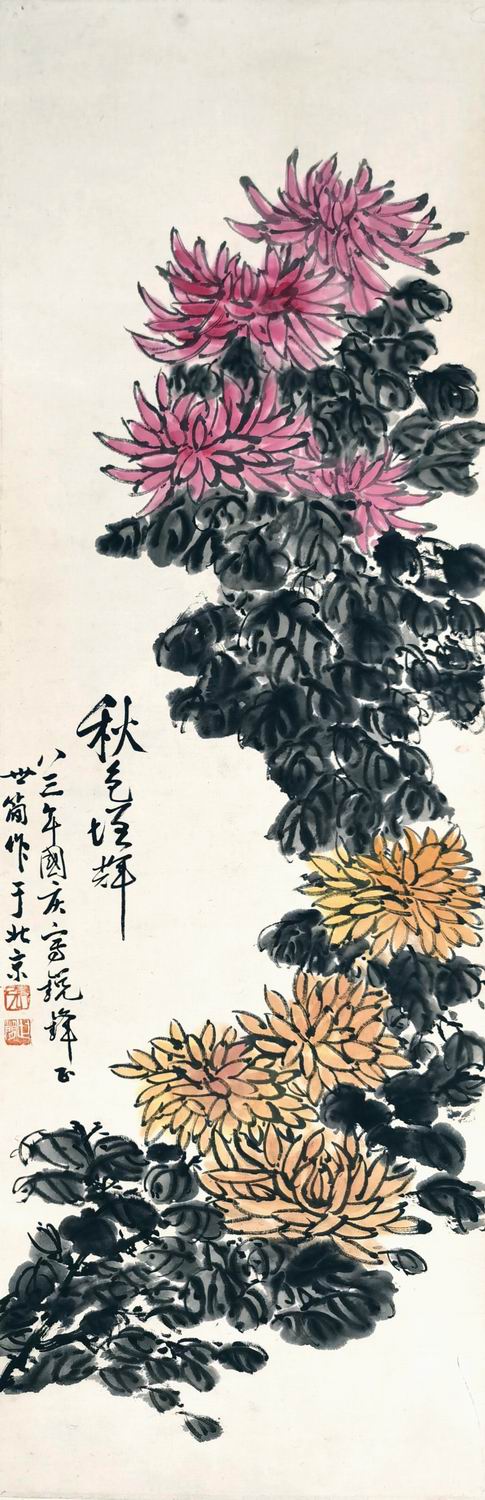 秋色增辉
八三年國庆写锐锋正
世简作于北京